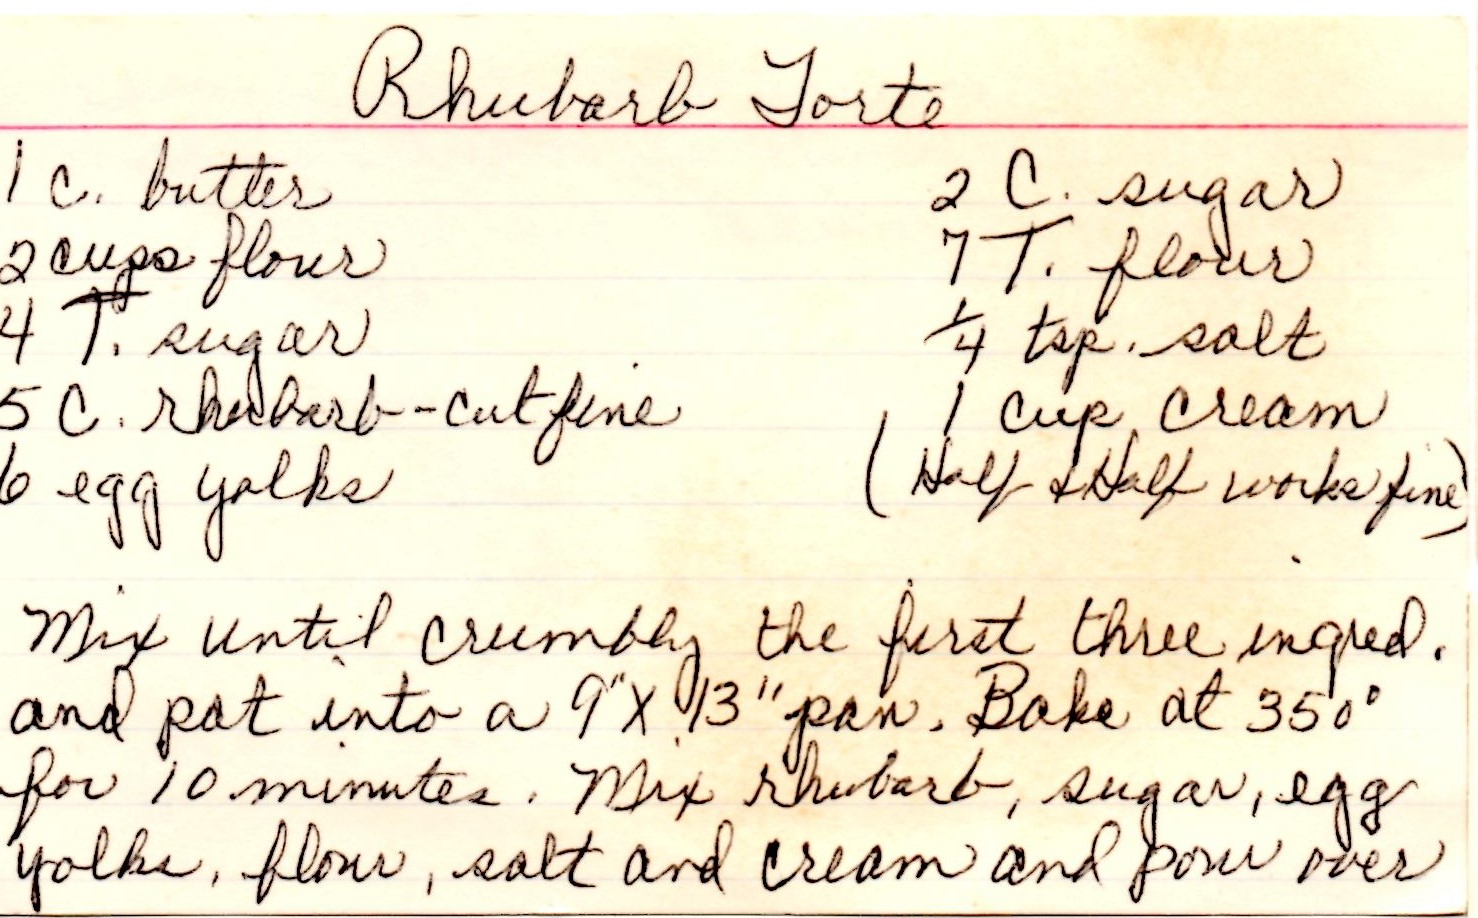 Rhubarb Torte
1 C. butter
2 cups flour
4 T. sugar
5 C. rhubarb - cut fine
6 egg yolks
2 C. sugar
7 T. flour
1/4 tsp. salt
1 cup cream
(Half & Half works fine)
Mix until crumbly the first three ingred.
and pat into a 9"X 13" pan. Bake at 350°
for 10 minutes. Mix rhubarb, sugar, egg
yolks, flour, salt and cream and pour over